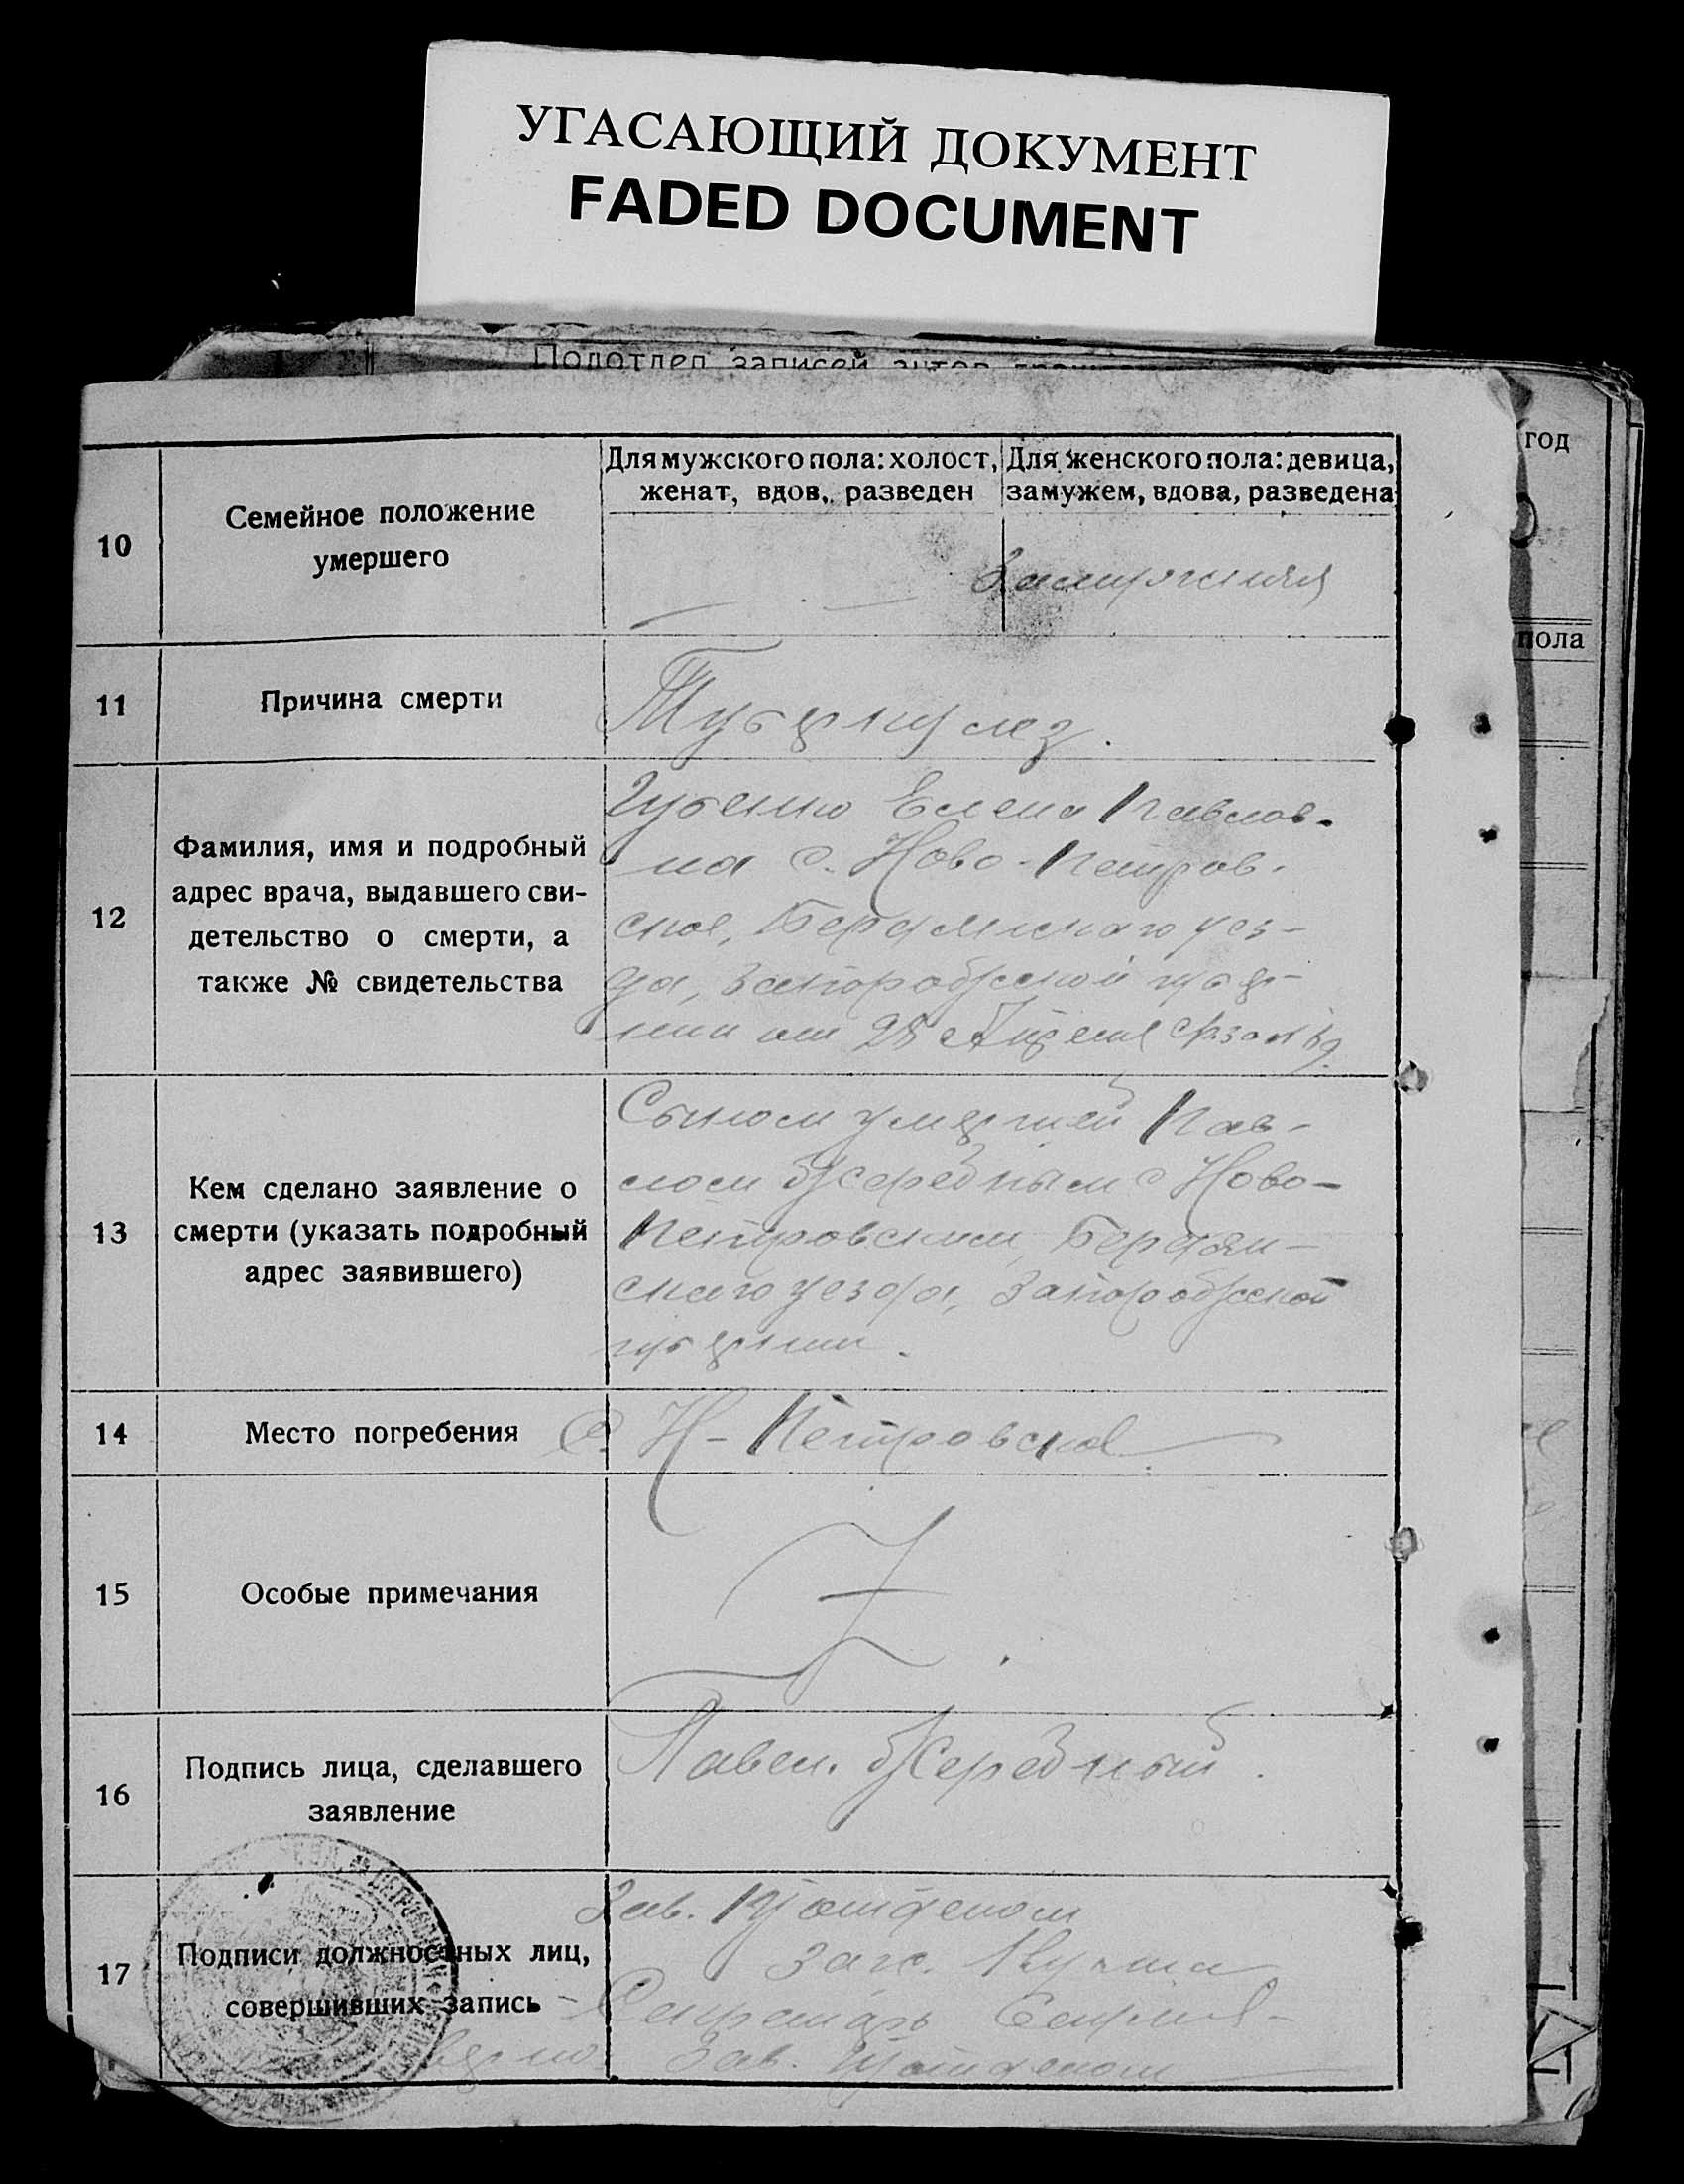 УГАСАЮЩИЙ ДОКУМЕНТ
FADED DOCUMENT
Подотдел записей актов
год
пола
10
Семейное положение
умершего
Для мужского пола: холост,
женат, вдов, разведен
Для женского пола: девица,
замужем, вдова, разведена
Замужняя
11
Причина смерти
Туберкулез.
12
Фамилия, имя и подробный
адрес врача, выдавшего сви-
детельство о смерти, а
также № свидетельства
Губенко Елена Павлов-
на с. Ново-Петров-
ское, Бердянского уез-
да, Запорожской губер-
нии от 28 Апреля
13
Кем сделано заявление о
смерти (указать подробный
адрес заявившего)
Сыном умершей Пав-
лом Жеребным с Ново-
Петровским, Бердян-
ского уезда, Запорожской
губернии.
14
Место погребения
с. Н-Петровское
15
Особые примечания
16
Подпись лица, сделавшего
заявление
Павел. Жеребный.
17
Подписи должностных лиц,
совершивших запись
Зав.
загс.
Секретарь
Верно. Зав.